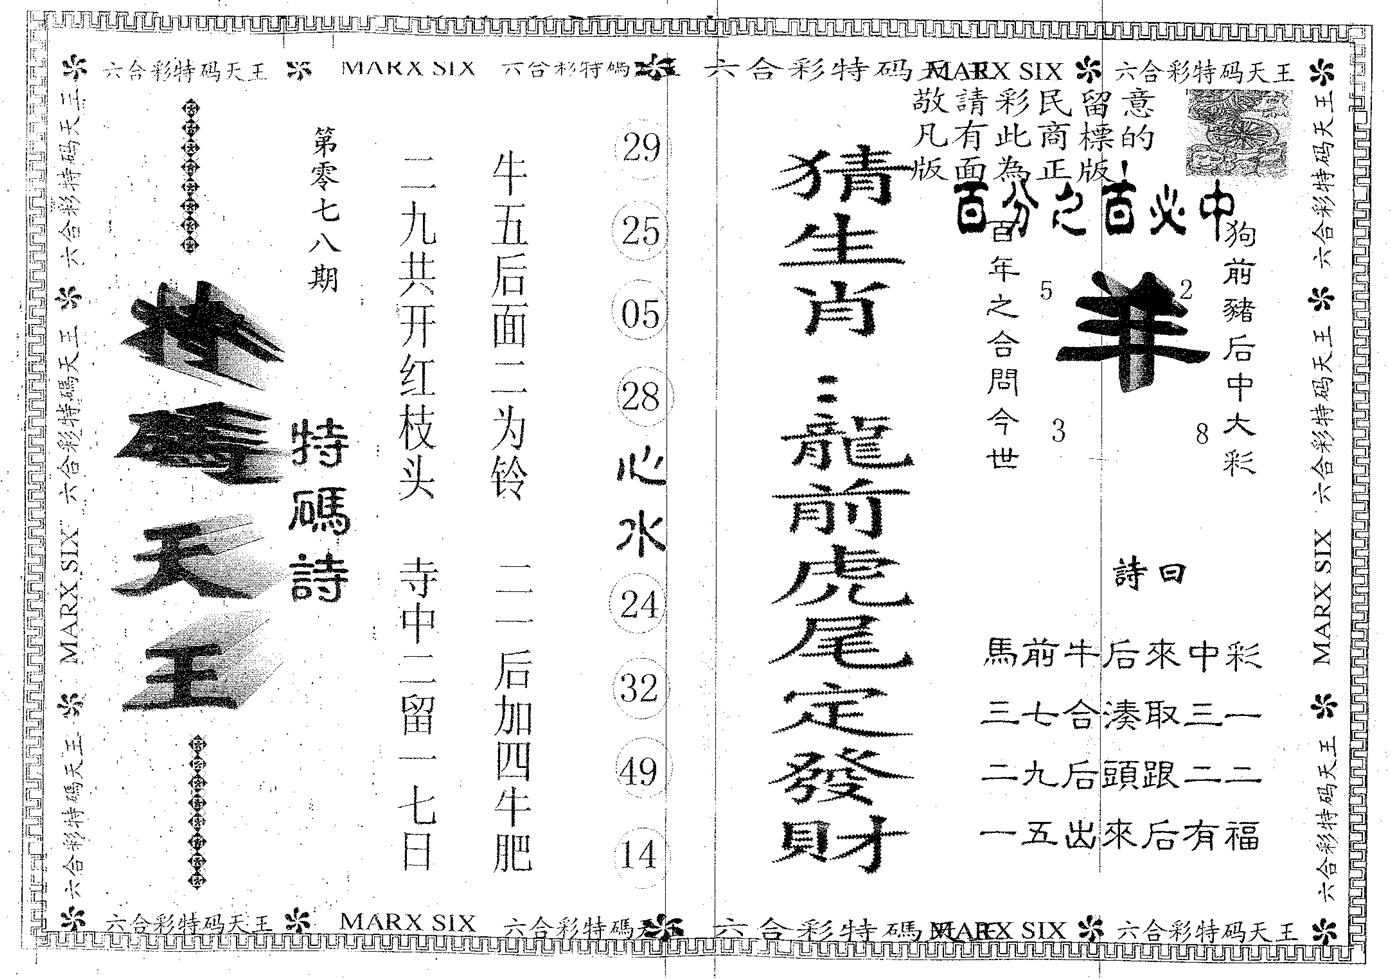 六合彩特码天王 MARX SIX 六合彩特碼天王
六合彩特码天王 MARX SIX 六合彩特码天王
敬請彩民留意
凡有此商標的
版面為正版!
百分之百必中
特碼天王
第零七八期
特碼詩
二九共开红枝头
寺中二留一七日
牛五后面二为铃
二一后加四牛肥
29
25
05
28
心水
24
32
49
14
猜生肖:龍前虎尾定發財
百年之合問今世
羊
5
2
3
8
狗前豬后中大彩
詩曰
馬前牛后來中彩
三七合湊取三一
二九后頭跟二二
一五出來后有福
六合彩特码天王
六合彩特碼天王
MARX SIX
六合彩特码天王
六合彩特码天王
六合彩特码天王
MARX SIX
六合彩特码天王
六合彩特码天王 MARX SIX 六合彩特碼天王
六合彩特碼天王 MARX SIX 六合彩特码天王